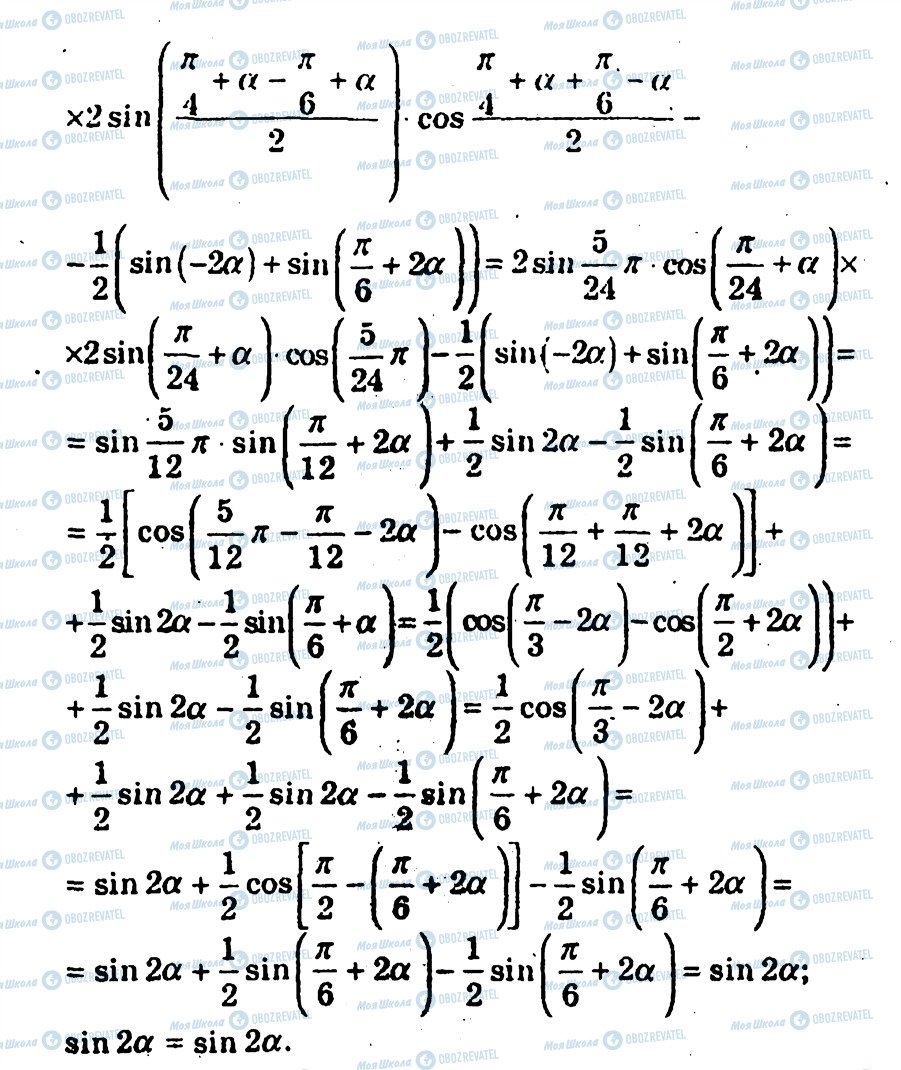 ×2 sin((π/4 + α − π/6 + α)/2) · cos (π/4 + α + π/6 − α)/2 −
−1/2(sin(−2α) + sin(π/6 + 2α)) = 2 sin 5/24 π · cos(π/24 + α)×
×2 sin(π/24 + α) · cos(5/24 π) − 1/2(sin(−2α) + sin(π/6 + 2α)) =
= sin 5/12 π · sin(π/12 + 2α) + 1/2 sin 2α − 1/2 sin(π/6 + 2α) =
= 1/2[cos(5/12 π − π/12 − 2α) − cos(π/12 + π/12 + 2α)] +
+ 1/2 sin 2α − 1/2 sin(π/6 + α) = 1/2(cos(π/3 − 2α) − cos(π/2 + 2α)) +
+ 1/2 sin 2α − 1/2 sin(π/6 + 2α) = 1/2 cos(π/3 − 2α) +
+ 1/2 sin 2α + 1/2 sin 2α − 1/2 sin(π/6 + 2α) =
= sin 2α + 1/2 cos[π/2 − (π/6 + 2α)] − 1/2 sin(π/6 + 2α) =
= sin 2α + 1/2 sin(π/6 + 2α) − 1/2 sin(π/6 + 2α) = sin 2α;
sin 2α = sin 2α.
Моя Школа OBOZREVATEL